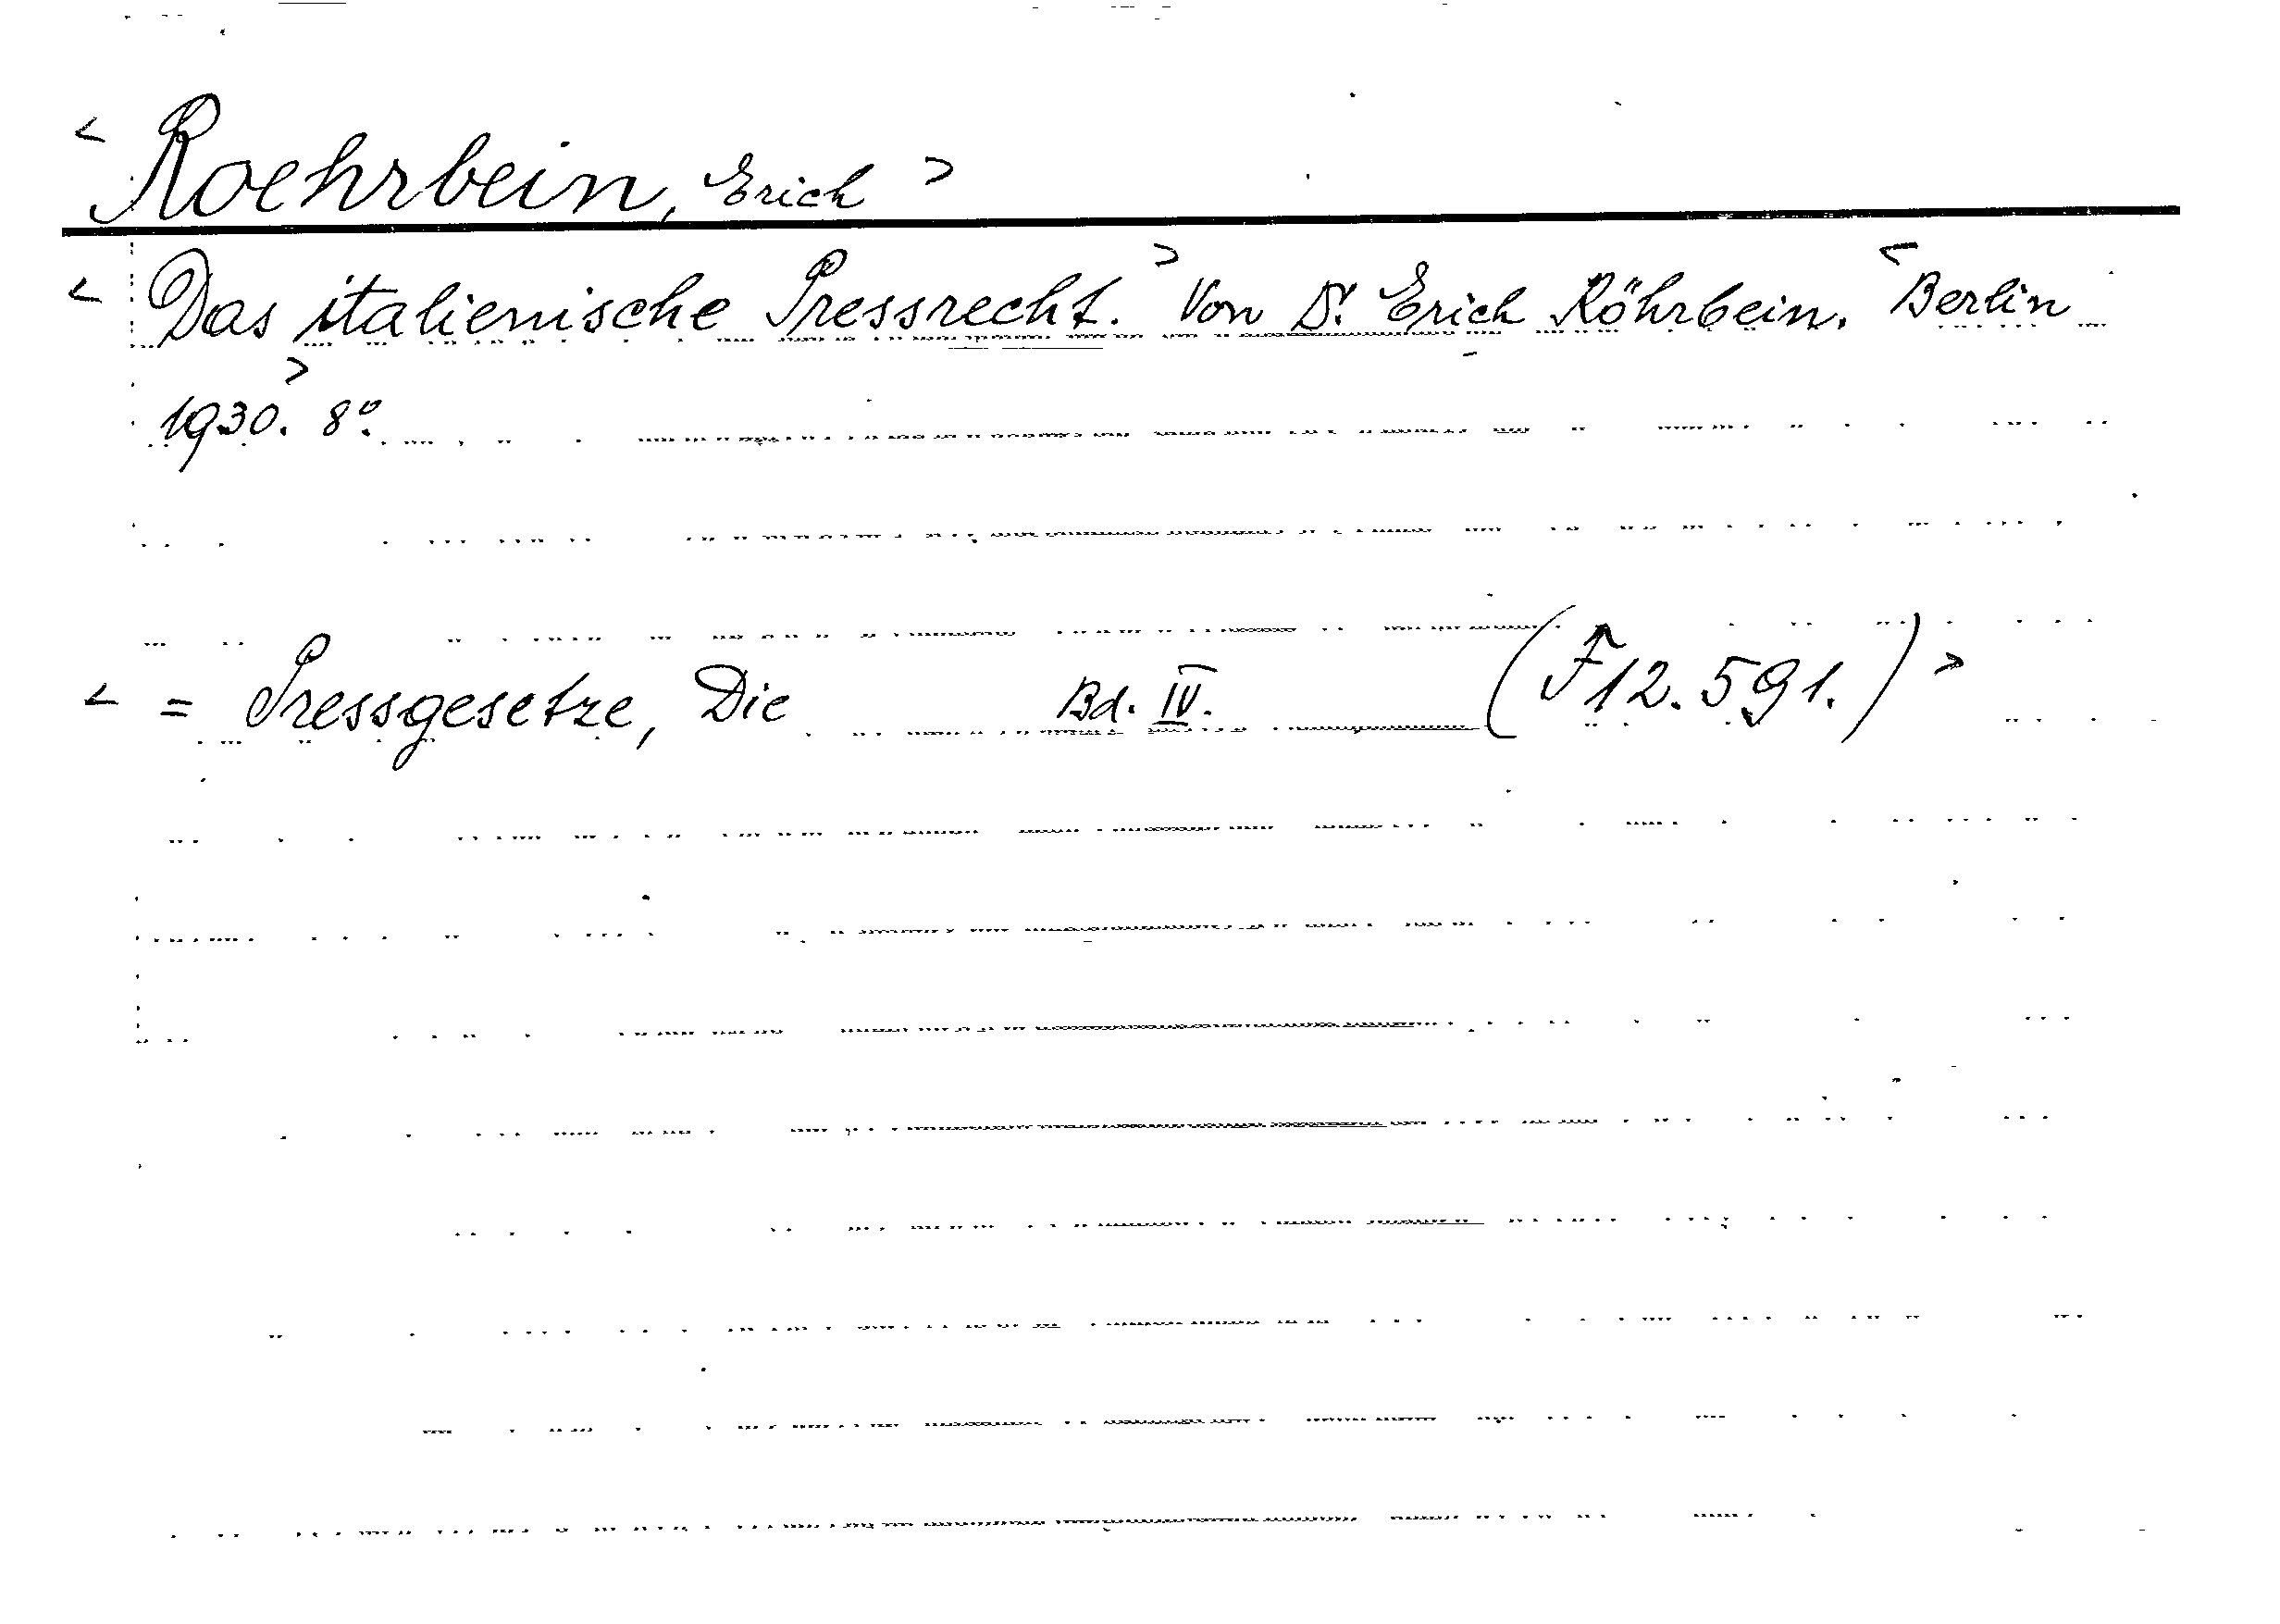 < Roehrbein, Erich >
< Das italienische Pressrecht. > Von Dr. Erich Röhrbein. < Berlin
1930. > 8°.
< = Pressgesetze, Die Bd. IV. (F 12.591.) >